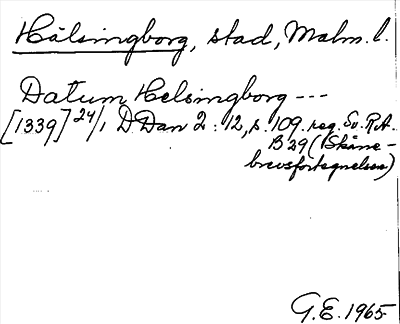 Hälsingborg, stad, Malm. l.
Datum Helsingborg ---
[1339] 24/1 D Dan 2: 12, s. 109. reg. Sv. R.A.
B 29 (Skåne-
brevsfortegnelsen)
G.E. 1965